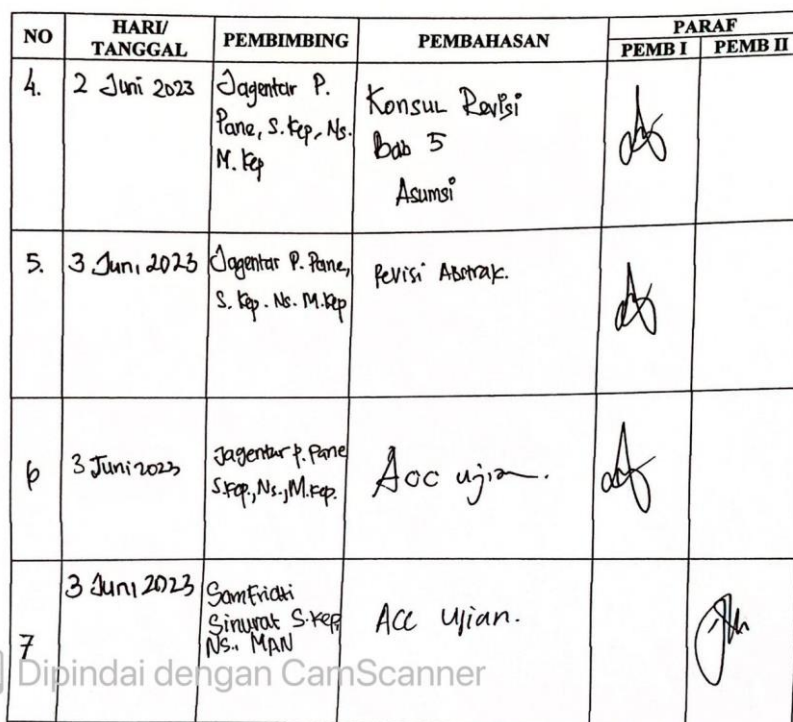 NO HARI/ TANGGAL PEMBIMBING PEMBAHASAN PARAF
PEMB I PEMB II
4. 2 Juni 2023 Jagentar P. Pane, S.Kep, Ns. M.Kep Konsul Revisi Bab 5 Asumsi
5. 3 Juni 2023 Jagentar P. Pane, S. Kep. Ns. M.Kep Revisi Abstrak.
6 3 Juni 2023 Jagentar P. Pane S.Kep., Ns., M.Kep. Acc ujian.
7 3 Juni 2023 Samfriati Sinurat S.Kep, NS., MAN Acc Ujian.
Dipindai dengan CamScanner